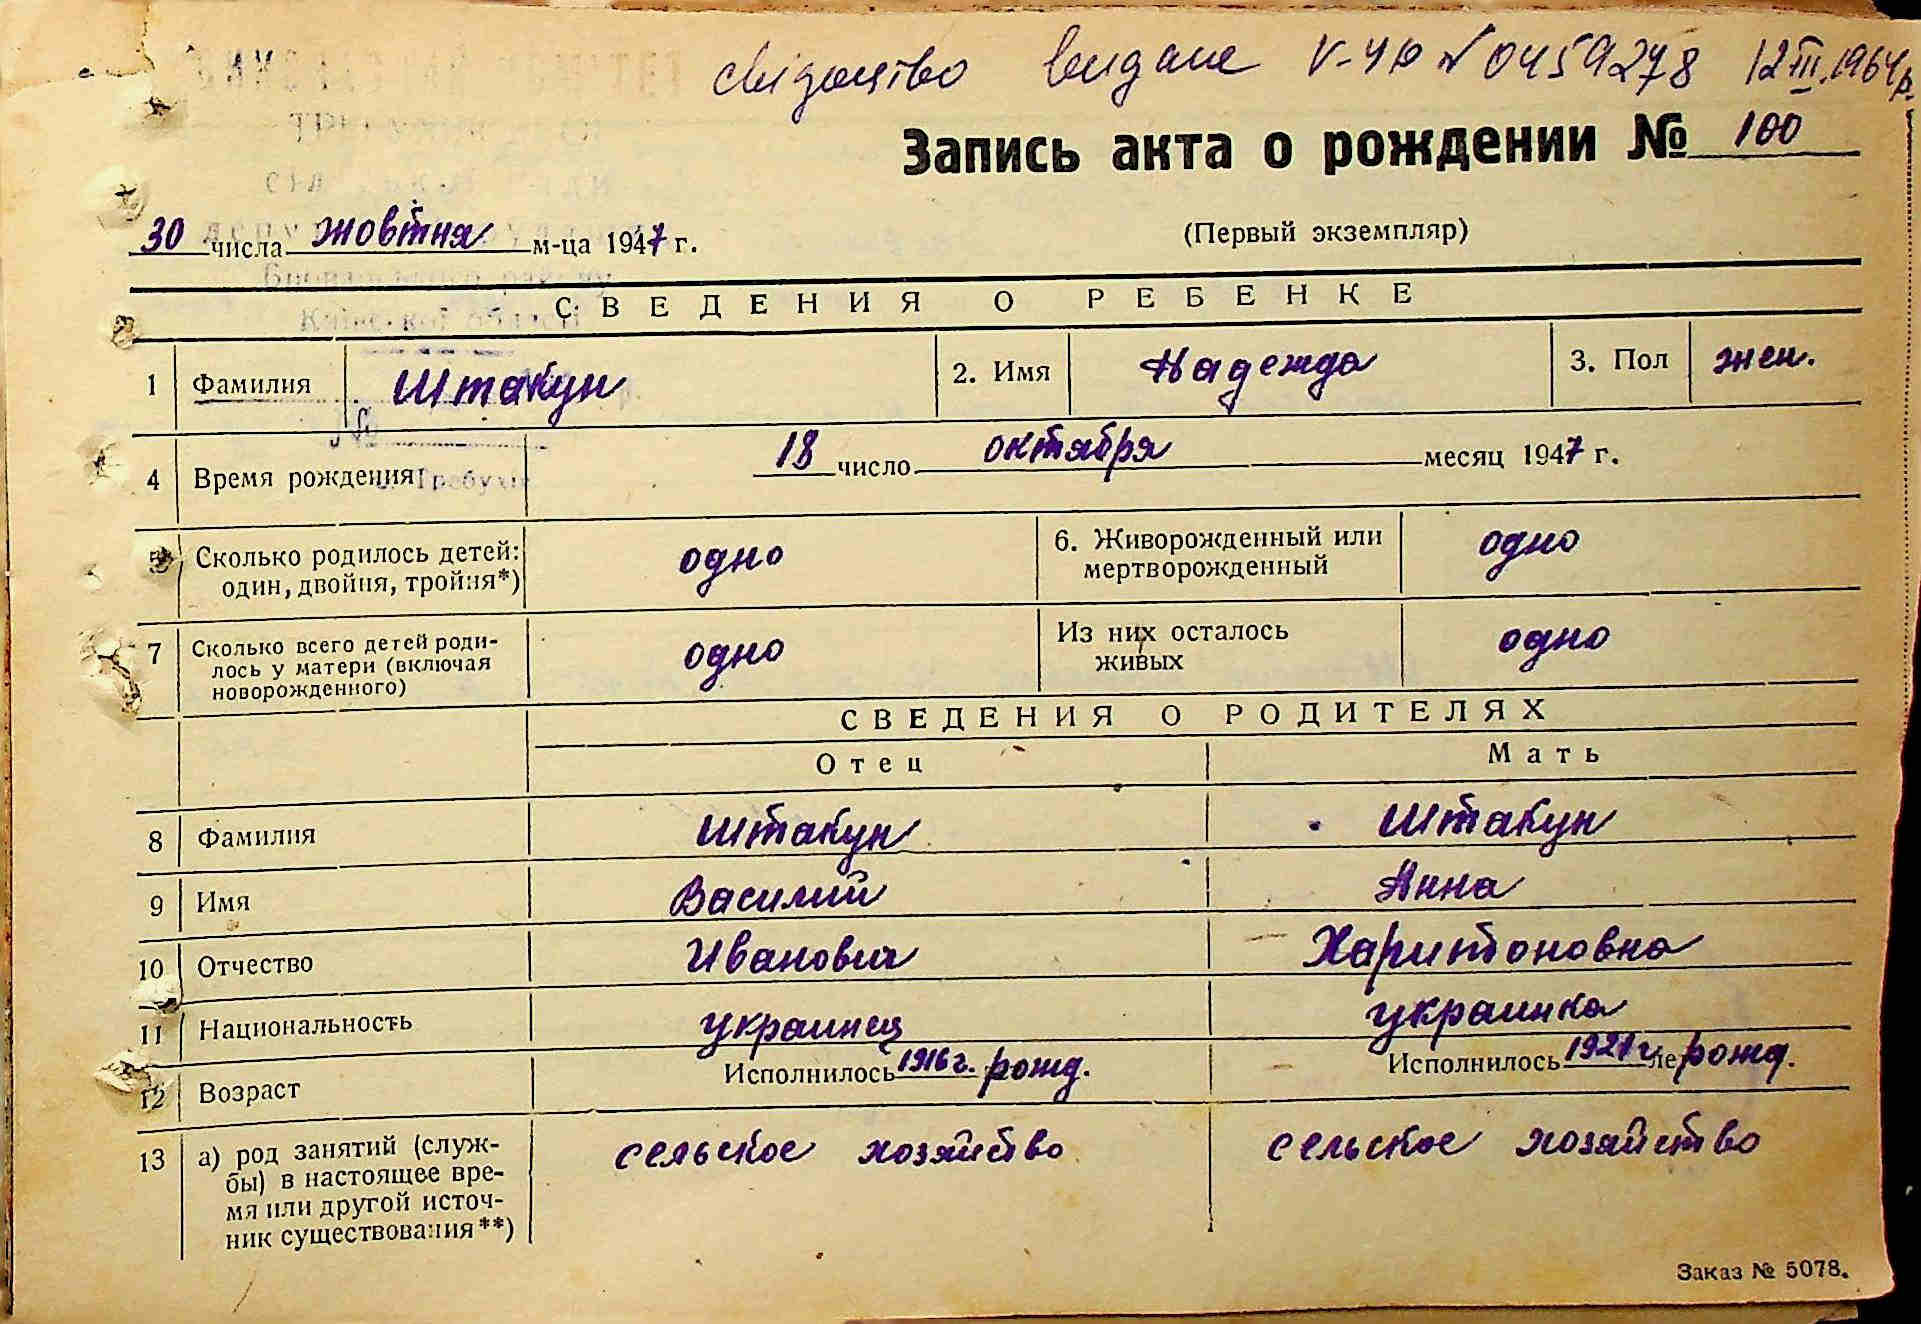 свідоцтво видане V-ЧЮ № 0459278 12 III. 1964 р.
Запись акта о рождении № 100
30 числа жовтня м-ца 1947 г.
(Первый экземпляр)
СВЕДЕНИЯ О РЕБЕНКЕ
1 Фамилия Штакун 2. Имя Надежда 3. Пол жен.
4 Время рождения 18 число октября месяц 1947 г.
5 Сколько родилось детей: один, двойня, тройня*) одно 6. Живорожденный или мертворожденный одно
7 Сколько всего детей родилось у матери (включая новорожденного) одно Из них осталось живых одно
СВЕДЕНИЯ О РОДИТЕЛЯХ
Отец Мать
8 Фамилия Штакун Штакун
9 Имя Василий Анна
10 Отчество Иванович Харитоновна
11 Национальность украинец украинка
12 Возраст Исполнилось 1916 г. рожд. Исполнилось 1921 г. рожд.
13 а) род занятий (служ-
бы) в настоящее вре-
мя или другой источ-
ник существования**) сельское хозяйство сельское хозяйство
Заказ № 5078.